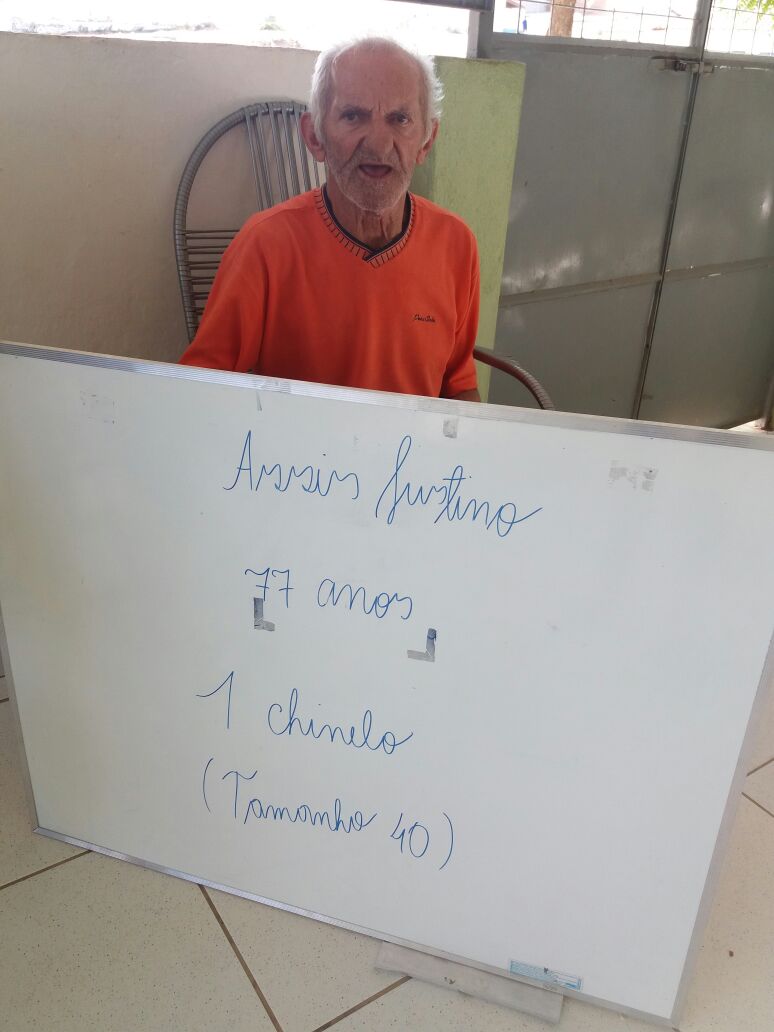 Assis Justino
77 anos
1 chinelo
(Tamanho 40)